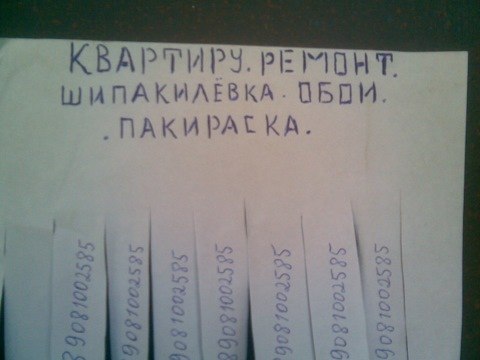 КВАРТИРУ. РЕМОНТ.
ШИПАКИЛЁВКА. ОБОИ.
. ПАКИРАСКА.
89081002585
89081002585
89081002585
89081002585
89081002585
89081002585
89081002585